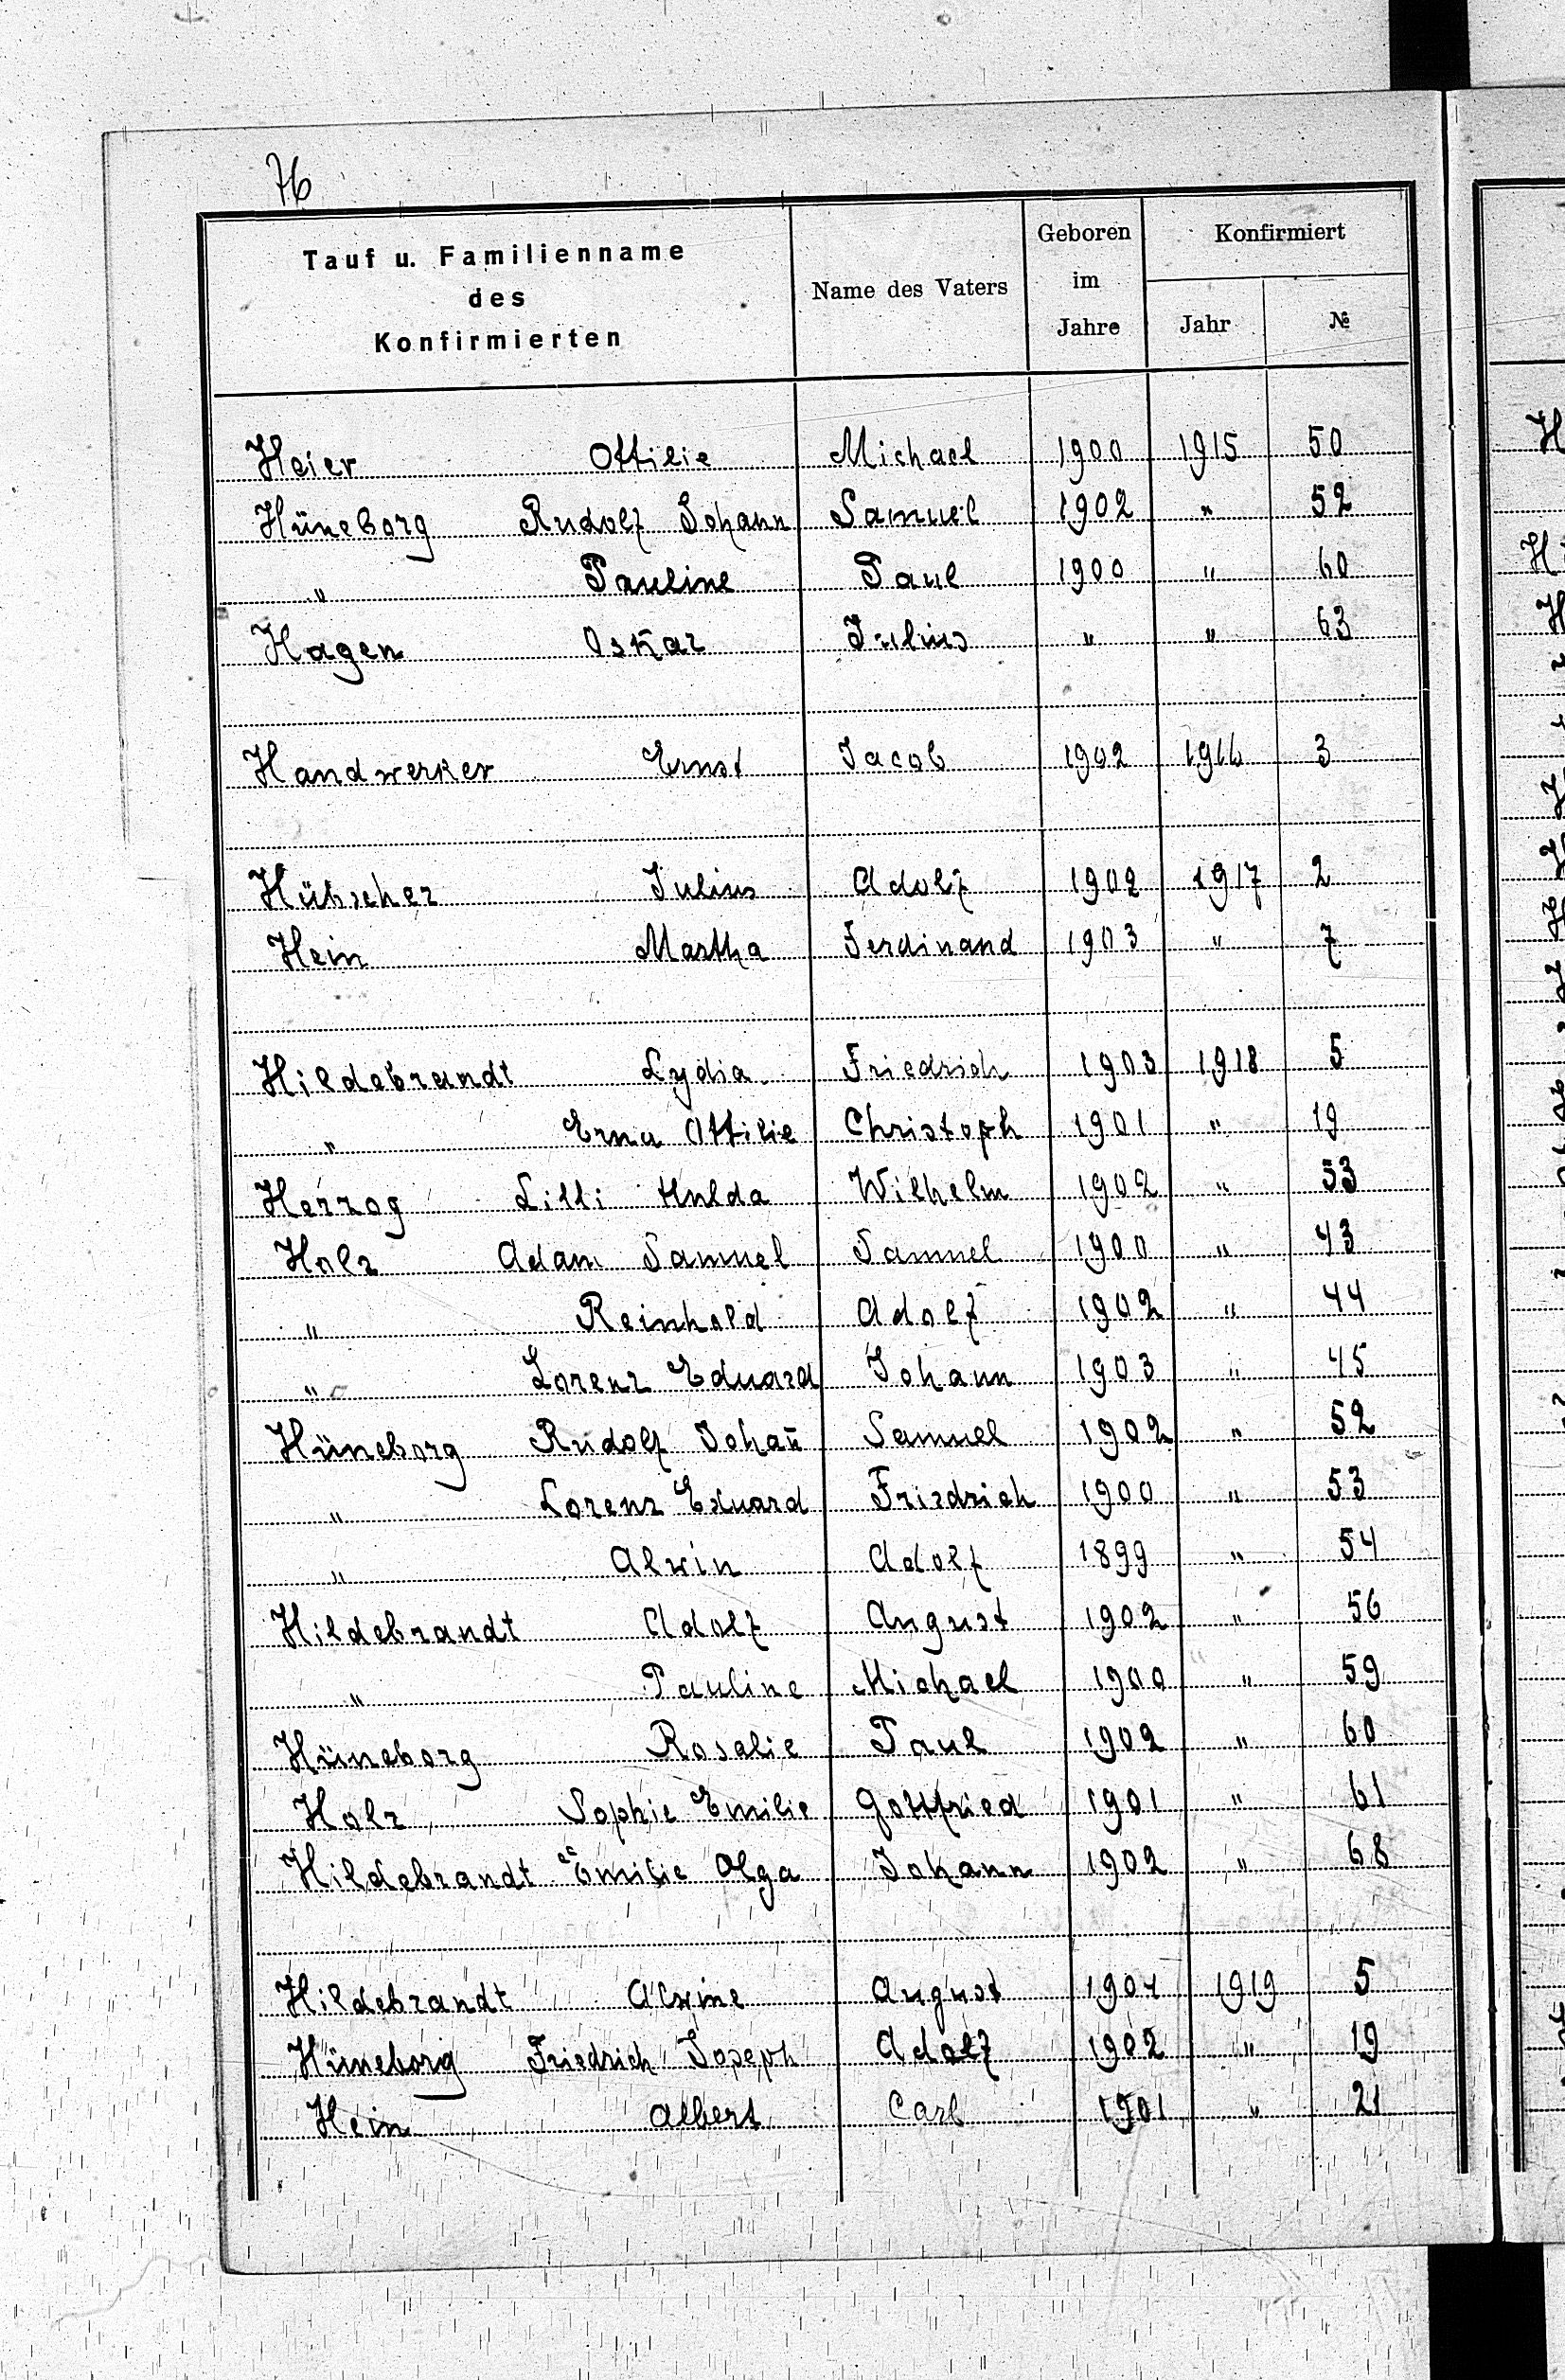 76
Tauf u. Familienname
des
Konfirmierten
Name des Vaters
Geboren
im
Jahre
Konfirmiert
Jahr
№
Heier Ottilie Michael 1900 1915 50
Hüneborg Rudolf Johann Samuel 1902 " 52
" Pauline Paul 1900 " 60
Hagen Oskar Julius " " 63
Handwerker Ernst Jacob 1902 1916 3
Hübscher Julius Adolf 1902 1917 2
Hein Martha Ferdinand 1903 " 7
Hildebrandt Lydia Friedrich 1903 1918 5
" Erna Ottilie Christoph 1901 " 19
Herzog Lilli Hulda Wilhelm 1902 " 33
Holz Adam Samuel Samuel 1900 " 43
" Reinhold Adolf 1902 " 44
" Lorenz Eduard Johann 1903 " 45
Hüneborg Rudolf Johan̄ Samuel 1902 " 52
" Lorenz Eduard Friedrich 1900 " 53
" Alwin Adolf 1899 " 54
Hildebrandt Adolf August 1902 " 56
" Pauline Michael 1900 " 59
Hüneborg Rosalie Paul 1902 " 60
Holz Sophie Emilie Gottfried 1901 " 61
Hildebrandt Emilie Olga Johann 1902 " 68
Hildebrandt Alwine August 1904 1919 5
Hüneborg Friedrich Joseph Adolf 1902 " 19
Hein Albert Carl 1901 " 21